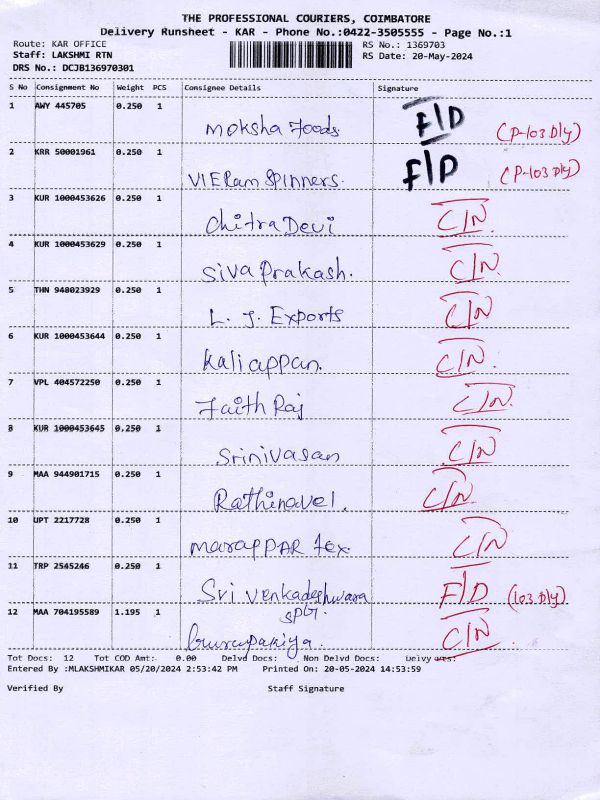 THE PROFESSIONAL COURIERS, COIMBATORE
Delivery Runsheet - KAR - Phone No.:0422-3505555 - Page No.:1
Route: KAR OFFICE RS No.: 1369703
Staff: LAKSHMI RTN RS Date: 20-May-2024
DRS No.: DCJB136970301
S No Consignment No Weight PCS Consignee Details Signature
1 AWY 445705 0.250 1 Moksha Foods F/D (P-103 Dly)
2 KRR 50001961 0.250 1 VIERam Spinners. F/D (P-103 Dly)
3 KUR 1000453626 0.250 1 Chitra Devi C/N.
4 KUR 1000453629 0.250 1 Siva Prakash. C/N.
5 THN 948023929 0.250 1 L. J. Exports C/N
6 KUR 1000453644 0.250 1 Kaliappan. C/N.
7 VPL 404572250 0.250 1 Faith Raj C/N.
8 KUR 1000453645 0.250 1 Srinivasan C/N
9 MAA 944901715 0.250 1 Rathinavel. C/N.
10 UPT 2217728 0.250 1 Marappar Tex. C/N
11 TRP 2545246 0.250 1 Sri Venkadeshwara F/D (103 Dly)
SPG.
12 MAA 704195589 1.195 1 C/N.
Tot Docs: 12 Tot COD Amt: 0.00 Delvd Docs: Non Delvd Docs:
Entered By :MLAKSHMIKAR 05/20/2024 2:53:42 PM Printed On: 20-05-2024 14:53:59
Verified By Staff Signature